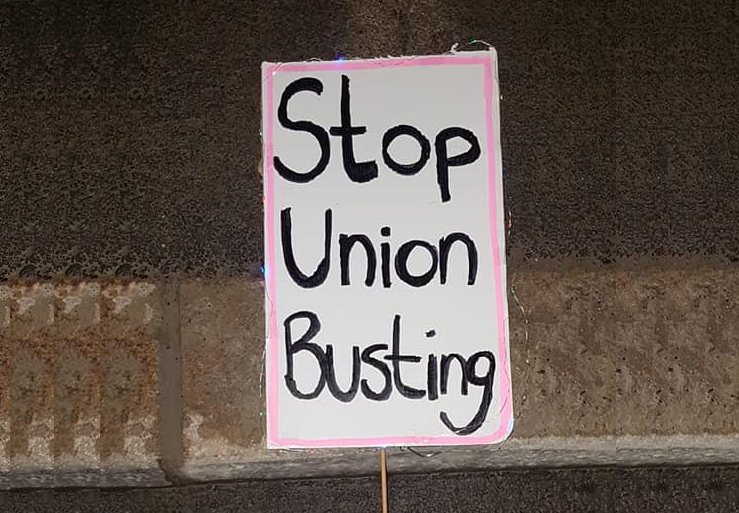 Stop
Union
Busting